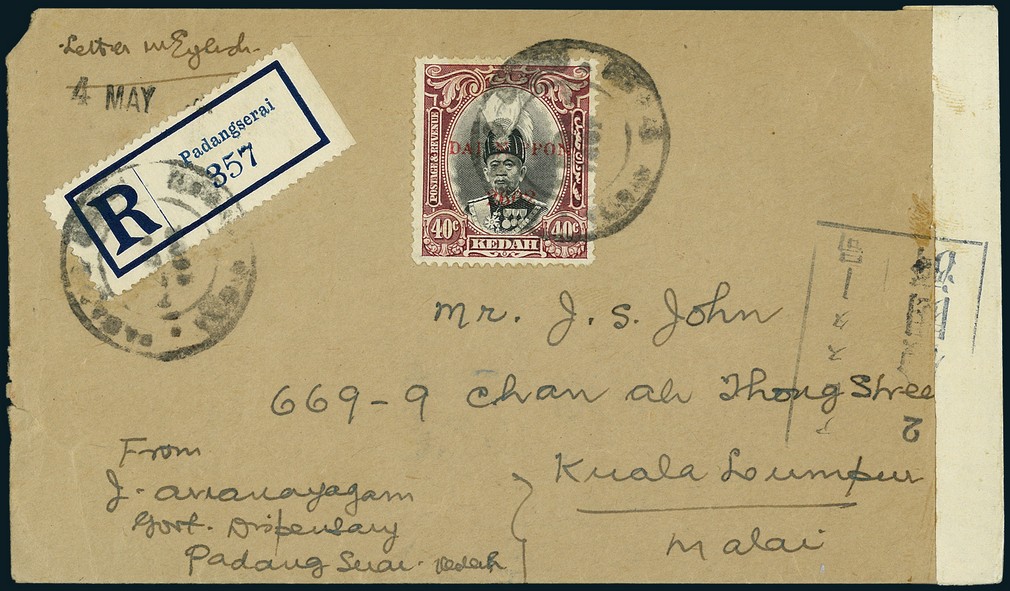 Letter in English.
4 MAY
Padangserai
R 357
POSTAGE & REVENUE
DAI NIPPON
2602
40c 40c
KEDAH
Mr. J. S. John
669-9 Chan ah Thong Stree
Kuala Lumpur
Malai
From
J.
Govt. Dispensary
Padang Serai. Kedah
2